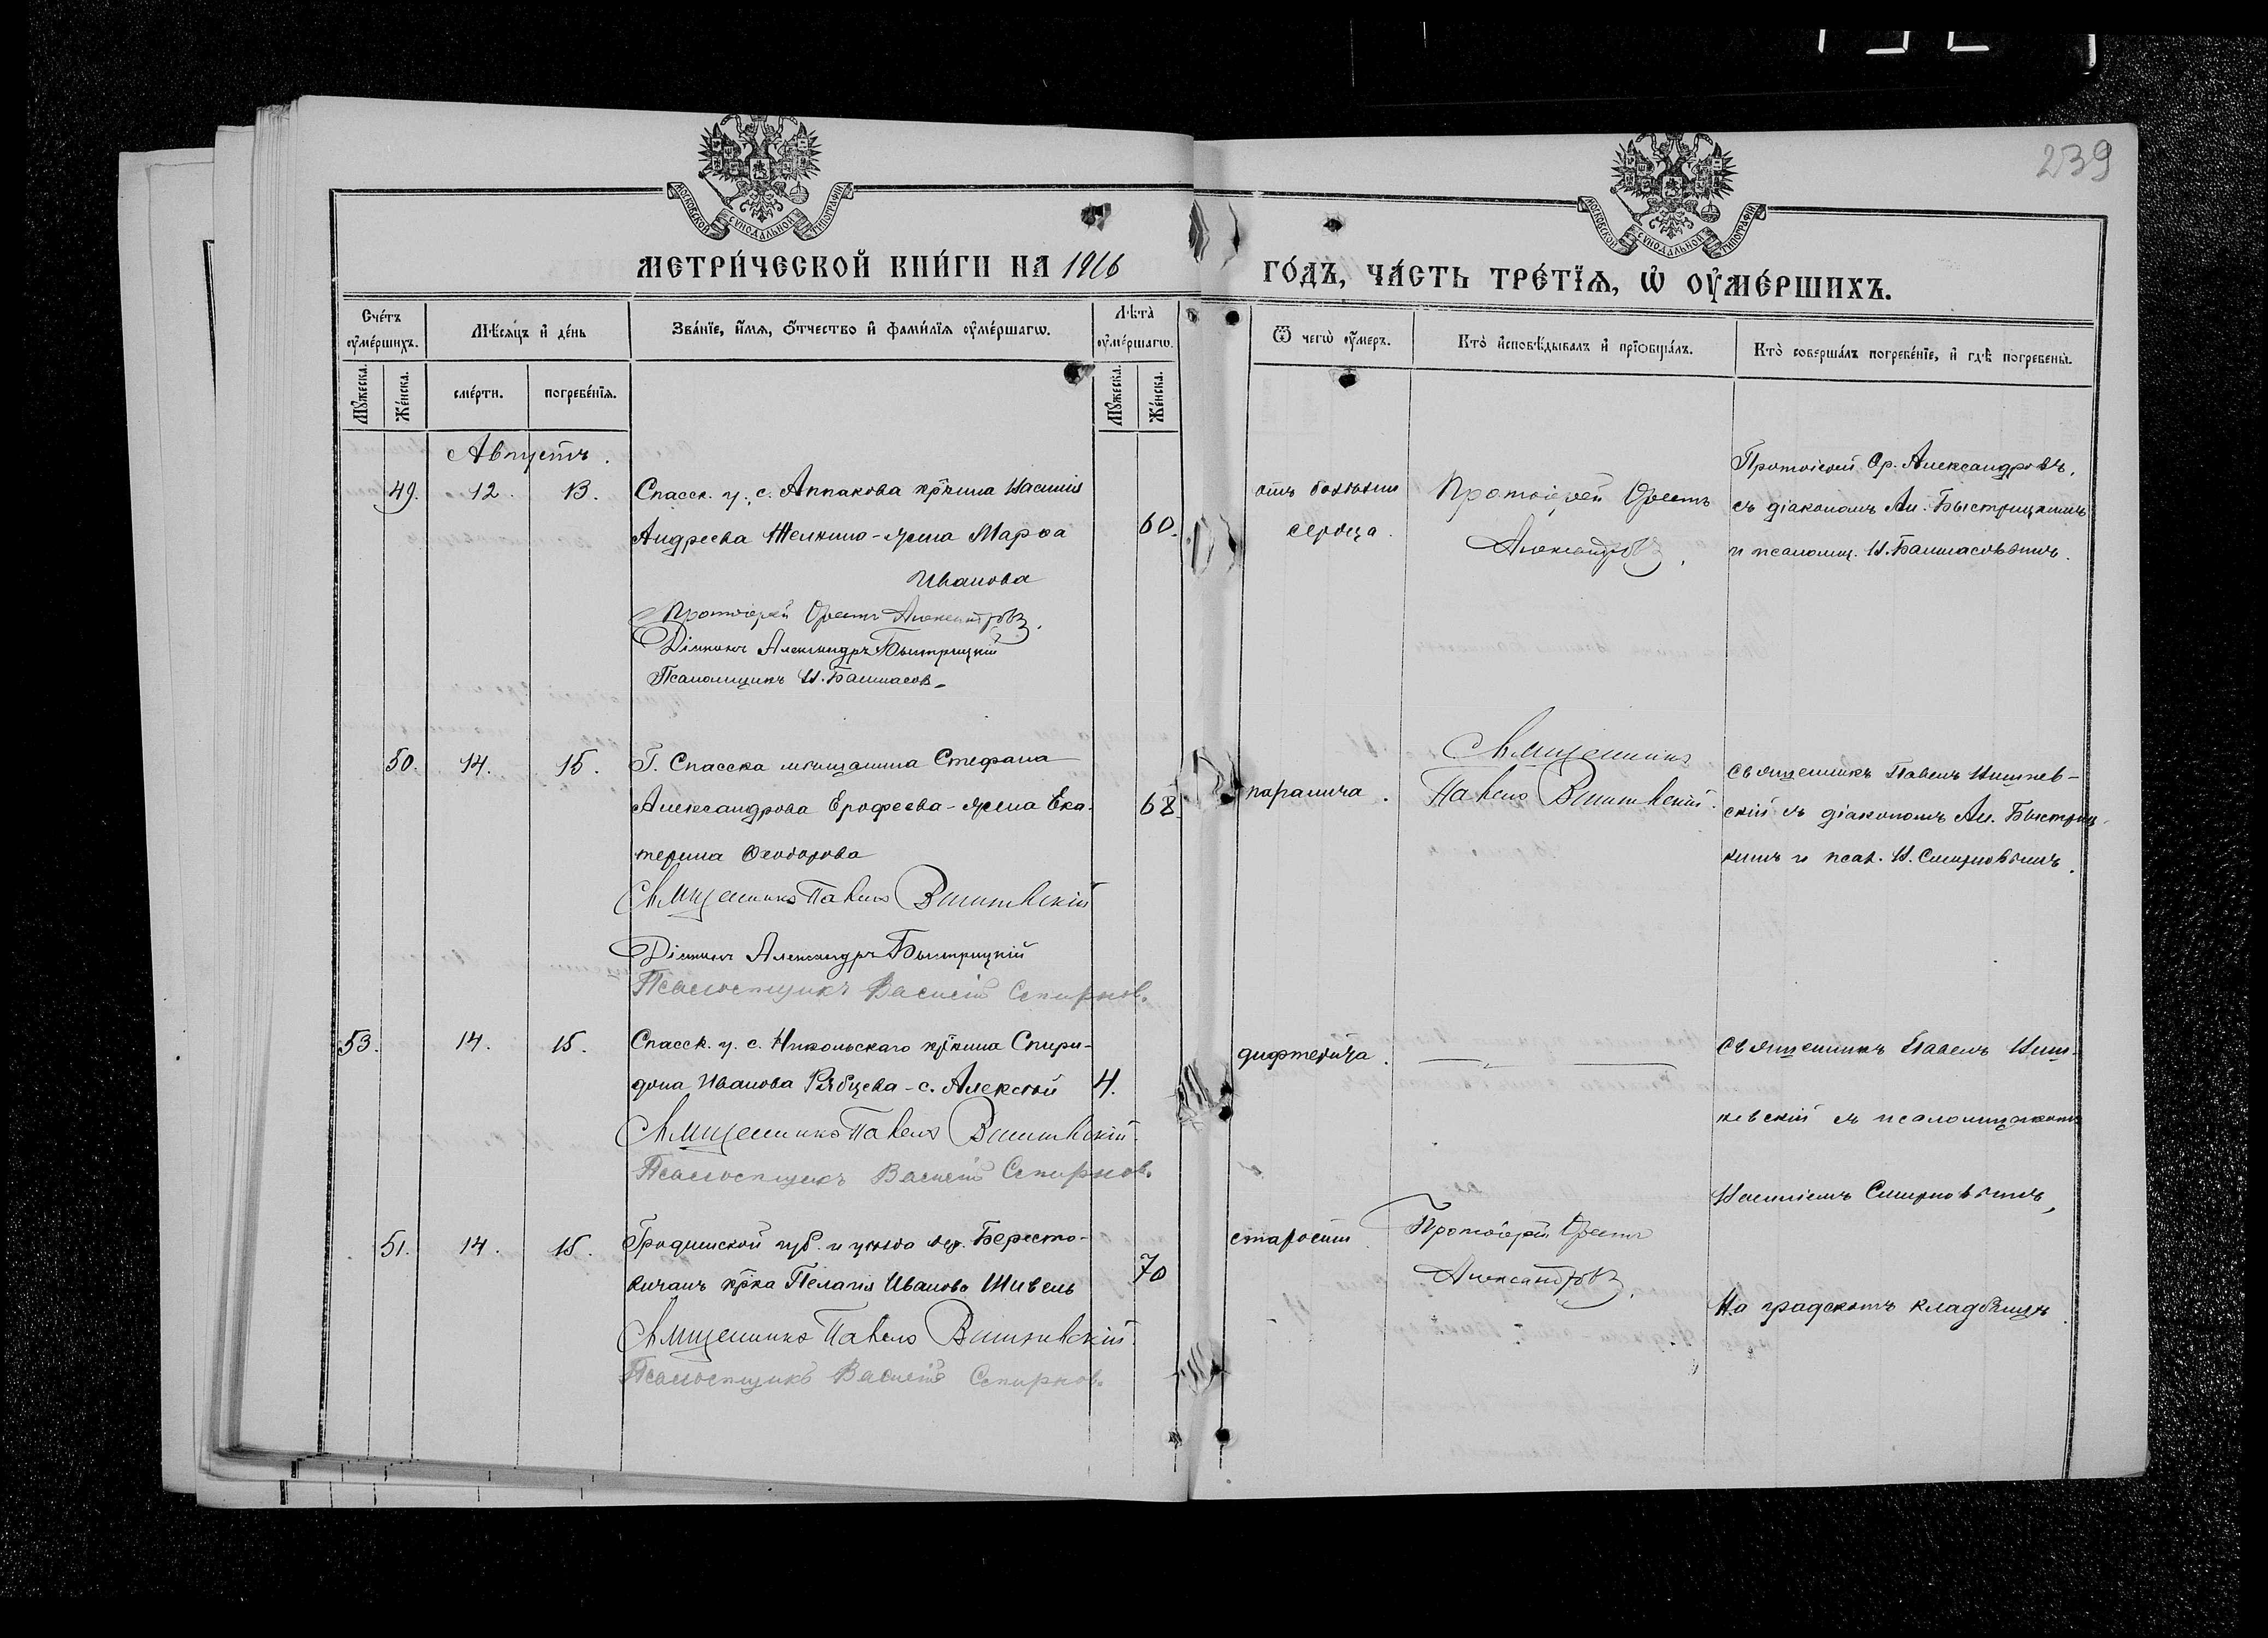 239
МОСКОВСКОЙ СѴНОДАЛЬНОЙ ТИПОГРАФІИ
МОСКОВСКОЙ СѴНОДАЛЬНОЙ ТИПОГРАФІИ
МЕТРИ́ЧЕСКОЙ КНИ́ГИ НА 1916 ГО́ДЪ, ЧА́СТЬ ТРЕ́ТЇѦ, Ѡ҆ ОУ҆МЕ́РШИХЪ.
Сче́тъ оу҆ме́ршихъ.
Мꙋ́жеска.
Же́нска.
Мѣ́сяцъ и҆ де́нь
сме́рти.
погребе́нїѧ.
Зва́нїе, и҆́мѧ, ѻ҆́тчество и҆ фами́лїѧ оу҆ме́ршагѡ.
Лѣта̀ оу҆ме́ршагѡ.
Мꙋ́жеска.
Же́нска.
Ѿ чегѡ̀ оу҆́меръ.
Кто̀ и҆сповѣ́дывалъ и҆ прїѡбща́лъ.
Кто̀ соверша́лъ погребе́нїе, и҆ гдѣ̀ погребены̀.
Августъ.
49. 12. 13. Спасск. у. с. Аппакова кр-нина Василія
Андреева Телкина - жена Марѳа
Иванова
60.
Протоіерей Орестъ Александровъ.
Діаконъ Александръ Быстрицкій
Псаломщикъ Н. Балмасов
отъ болѣзни
сердца.
Протоіерей Орестъ
Александровъ.
Протоіерей Ор. Александровъ,
съ діакономъ Ал. Быстрицкимъ
и псаломщ. Н. Балмасовымъ.
50. 14. 15. Г. Спасска мѣщанина Стефана
Александрова Ерофеева - жена Ека-
терина Ѳеодорова
68.
Священникъ Павелъ Вишневскій
Діаконъ Александръ Быстрицкій
Псаломщикъ Василій Смирнов.
паралича.
Священникъ
Павелъ Вишневскій.
Священникъ Павелъ Вишнев-
скій съ діакономъ Ал. Быстриц-
кимъ и псал. В. Смирновымъ.
53. 14. 15. Спасск. у. с. Никольскаго кр-нина Спири-
дона Иванова Рябцева - с. Алексѣй 4.
Священникъ Павелъ Вишневскій.
Псаломщикъ Василій Смирнов.
дифтерита.
Священникъ Павелъ Виш-
невскій съ псаломщикомъ
Василіемъ Смирновымъ,
51. 14. 15. Гродненской губ. и уѣзда дер. Бересто-
кр-ка Пелагія Иванова Шивель
70
Священникъ Павелъ Вишневскій.
Псаломщикъ Василій Смирнов.
старости.
Протоіерей Орестъ
Александровъ.
На градскомъ кладбищѣ.